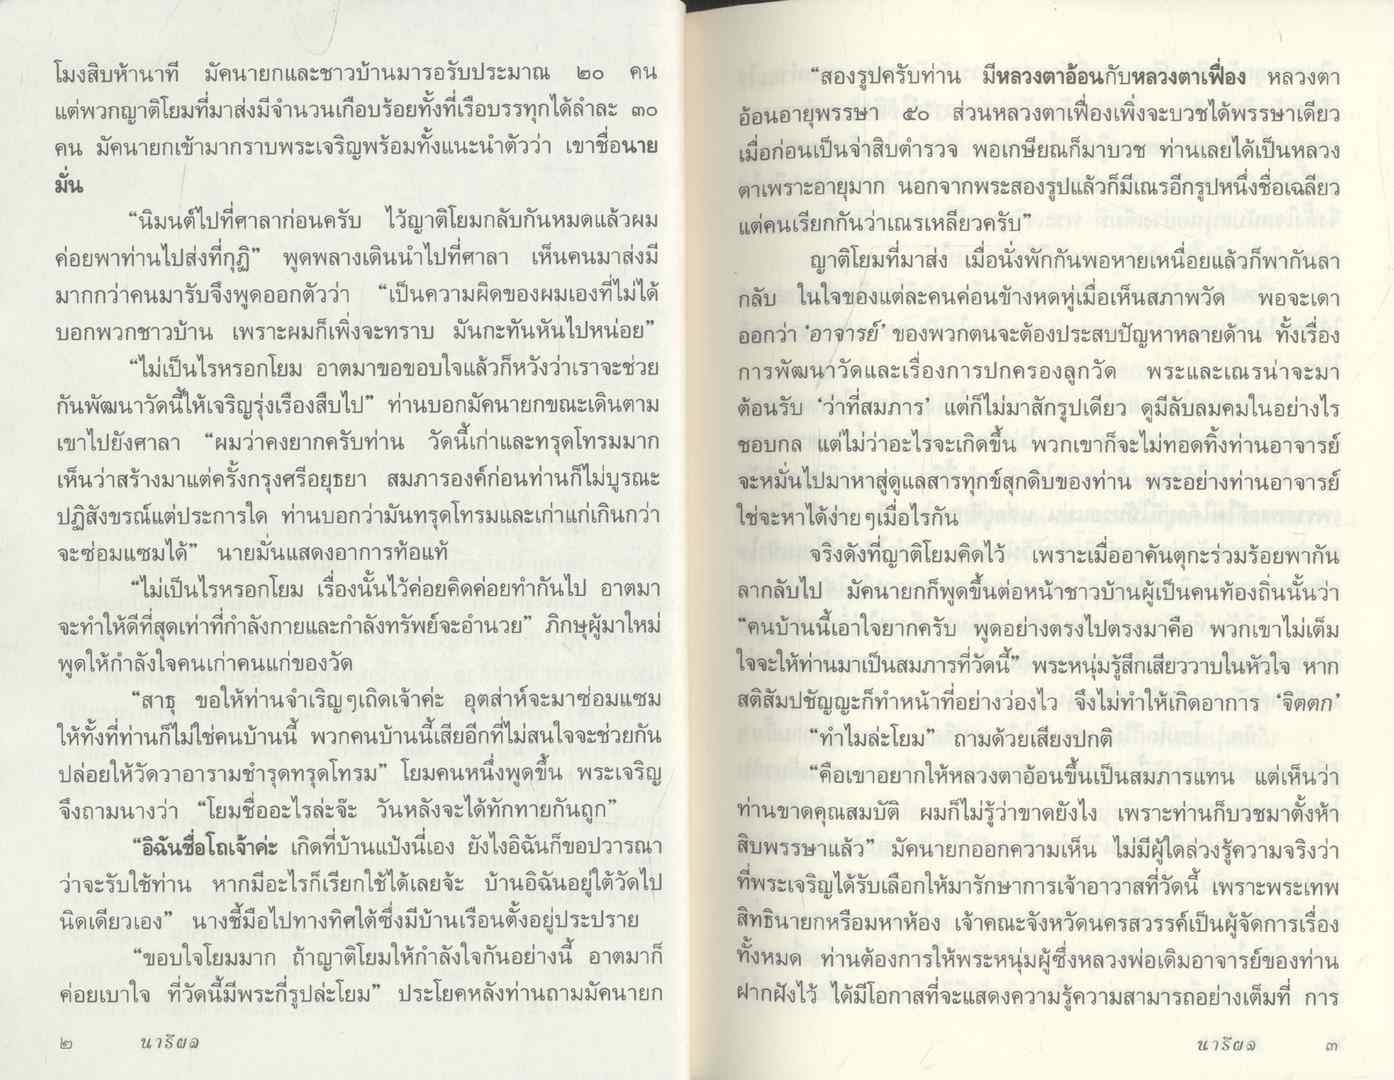 โมงสิบห้านาที มัคนายกและชาวบ้านมารอรับประมาณ ๒๐ คน
แต่พวกญาติโยมที่มาส่งมีจำนวนเกือบร้อยทั้งที่เรือบรรทุกได้ลำละ ๓๐
คน มัคนายกเข้ามากราบพระเจริญพร้อมทั้งแนะนำตัวว่า เขาชื่อนาย
มั่น
“นิมนต์ไปที่ศาลาก่อนครับ ไว้ญาติโยมกลับกันหมดแล้วผม
ค่อยพาท่านไปส่งที่กุฏิ” พูดพลางเดินนำไปที่ศาลา เห็นคนมาส่งมี
มากกว่าคนมารับจึงพูดออกตัวว่า “เป็นความผิดของผมเองที่ไม่ได้
บอกพวกชาวบ้าน เพราะผมก็เพิ่งจะทราบ มันกะทันหันไปหน่อย”
“ไม่เป็นไรหรอกโยม อาตมาขอขอบใจแล้วก็หวังว่าเราจะช่วย
กันพัฒนาวัดนี้ให้เจริญรุ่งเรืองสืบไป” ท่านบอกมัคนายกขณะเดินตาม
เขาไปยังศาลา “ผมว่าคงยากครับท่าน วัดนี้เก่าและทรุดโทรมมาก
เห็นว่าสร้างมาแต่ครั้งกรุงศรีอยุธยา สมภารองค์ก่อนท่านก็ไม่บูรณะ
ปฏิสังขรณ์แต่ประการใด ท่านบอกว่ามันทรุดโทรมและเก่าแก่เกินกว่า
จะซ่อมแซมได้” นายมั่นแสดงอาการท้อแท้
“ไม่เป็นไรหรอกโยม เรื่องนั้นไว้ค่อยคิดค่อยทำกันไป อาตมา
จะทำให้ดีที่สุดเท่าที่กำลังกายและกำลังทรัพย์จะอำนวย” ภิกษุผู้มาใหม่
พูดให้กำลังใจคนเก่าคนแก่ของวัด
“สาธุ ขอให้ท่านจำเริญๆเถิดเจ้าค่ะ อุตส่าห์จะมาซ่อมแซม
ให้ทั้งที่ท่านก็ไม่ใช่คนบ้านนี้ พวกคนบ้านนี้เสียอีกที่ไม่สนใจจะช่วยกัน
ปล่อยให้วัดวาอารามชำรุดทรุดโทรม” โยมคนหนึ่งพูดขึ้น พระเจริญ
จึงถามนางว่า “โยมชื่ออะไรล่ะจ๊ะ วันหลังจะได้ทักทายกันถูก”
“อิฉันชื่อโถเจ้าค่ะ เกิดที่บ้านแป้งนี่เอง ยังไงอิฉันก็ขอปวารณา
ว่าจะรับใช้ท่าน หากมีอะไรก็เรียกใช้ได้เลยจ้ะ บ้านอิฉันอยู่ใต้วัดไป
นิดเดียวเอง” นางชี้มือไปทางทิศใต้ซึ่งมีบ้านเรือนตั้งอยู่ประปราย
“ขอบใจโยมมาก ถ้าญาติโยมให้กำลังใจกันอย่างนี้ อาตมาก็
ค่อยเบาใจ ที่วัดนี้มีพระกี่รูปล่ะโยม” ประโยคหลังท่านถามมัคนายก
๒ นารีผล
“สองรูปครับท่าน มีหลวงตาอ้อนกับหลวงตาเฟื่อง หลวงตา
อ้อนอายุพรรษา ๕๐ ส่วนหลวงตาเฟื่องเพิ่งจะบวชได้พรรษาเดียว
เมื่อก่อนเป็นจ่าสิบตำรวจ พอเกษียณก็มาบวช ท่านเลยได้เป็นหลวง
ตาเพราะอายุมาก นอกจากพระสองรูปแล้วก็มีเณรอีกรูปหนึ่งชื่อเฉลียว
แต่คนเรียกกันว่าเณรเหลียวครับ”
ญาติโยมที่มาส่ง เมื่อนั่งพักกันพอหายเหนื่อยแล้วก็พากันลา
กลับ ในใจของแต่ละคนค่อนข้างหดหู่เมื่อเห็นสภาพวัด พอจะเดา
ออกว่า ‘อาจารย์’ ของพวกตนจะต้องประสบปัญหาหลายด้าน ทั้งเรื่อง
การพัฒนาวัดและเรื่องการปกครองลูกวัด พระและเณรน่าจะมา
ต้อนรับ ‘ว่าที่สมภาร’ แต่ก็ไม่มาสักรูปเดียว ดูมีลับลมคมในอย่างไร
ชอบกล แต่ไม่ว่าอะไรจะเกิดขึ้น พวกเขาก็จะไม่ทอดทิ้งท่านอาจารย์
จะหมั่นไปมาหาสู่ดูแลสารทุกข์สุกดิบของท่าน พระอย่างท่านอาจารย์
ใช่จะหาได้ง่ายๆเมื่อไรกัน
จริงดังที่ญาติโยมคิดไว้ เพราะเมื่ออาคันตุกะร่วมร้อยพากัน
ลากลับไป มัคนายกก็พูดขึ้นต่อหน้าชาวบ้านผู้เป็นคนท้องถิ่นนั้นว่า
“คนบ้านนี้เอาใจยากครับ พูดอย่างตรงไปตรงมาคือ พวกเขาไม่เต็ม
ใจจะให้ท่านมาเป็นสมภารที่วัดนี้” พระหนุ่มรู้สึกเสียววาบในหัวใจ หาก
สติสัมปชัญญะก็ทำหน้าที่อย่างว่องไว จึงไม่ทำให้เกิดอาการ ‘จิตตก’
“ทำไมล่ะโยม” ถามด้วยเสียงปกติ
“คือเขาอยากให้หลวงตาอ้อนขึ้นเป็นสมภารแทน แต่เห็นว่า
ท่านขาดคุณสมบัติ ผมก็ไม่รู้ว่าขาดยังไง เพราะท่านก็บวชมาตั้งห้า
สิบพรรษาแล้ว” มัคนายกออกความเห็น ไม่มีผู้ใดล่วงรู้ความจริงว่า
ที่พระเจริญได้รับเลือกให้มารักษาการเจ้าอาวาสที่วัดนี้ เพราะพระเทพ
สิทธินายกหรือมหาห้อง เจ้าคณะจังหวัดนครสวรรค์เป็นผู้จัดการเรื่อง
ทั้งหมด ท่านต้องการให้พระหนุ่มผู้ซึ่งหลวงพ่อเดิมอาจารย์ของท่าน
ฝากฝังไว้ ได้มีโอกาสที่จะแสดงความรู้ความสามารถอย่างเต็มที่ การ
นารีผล ๓